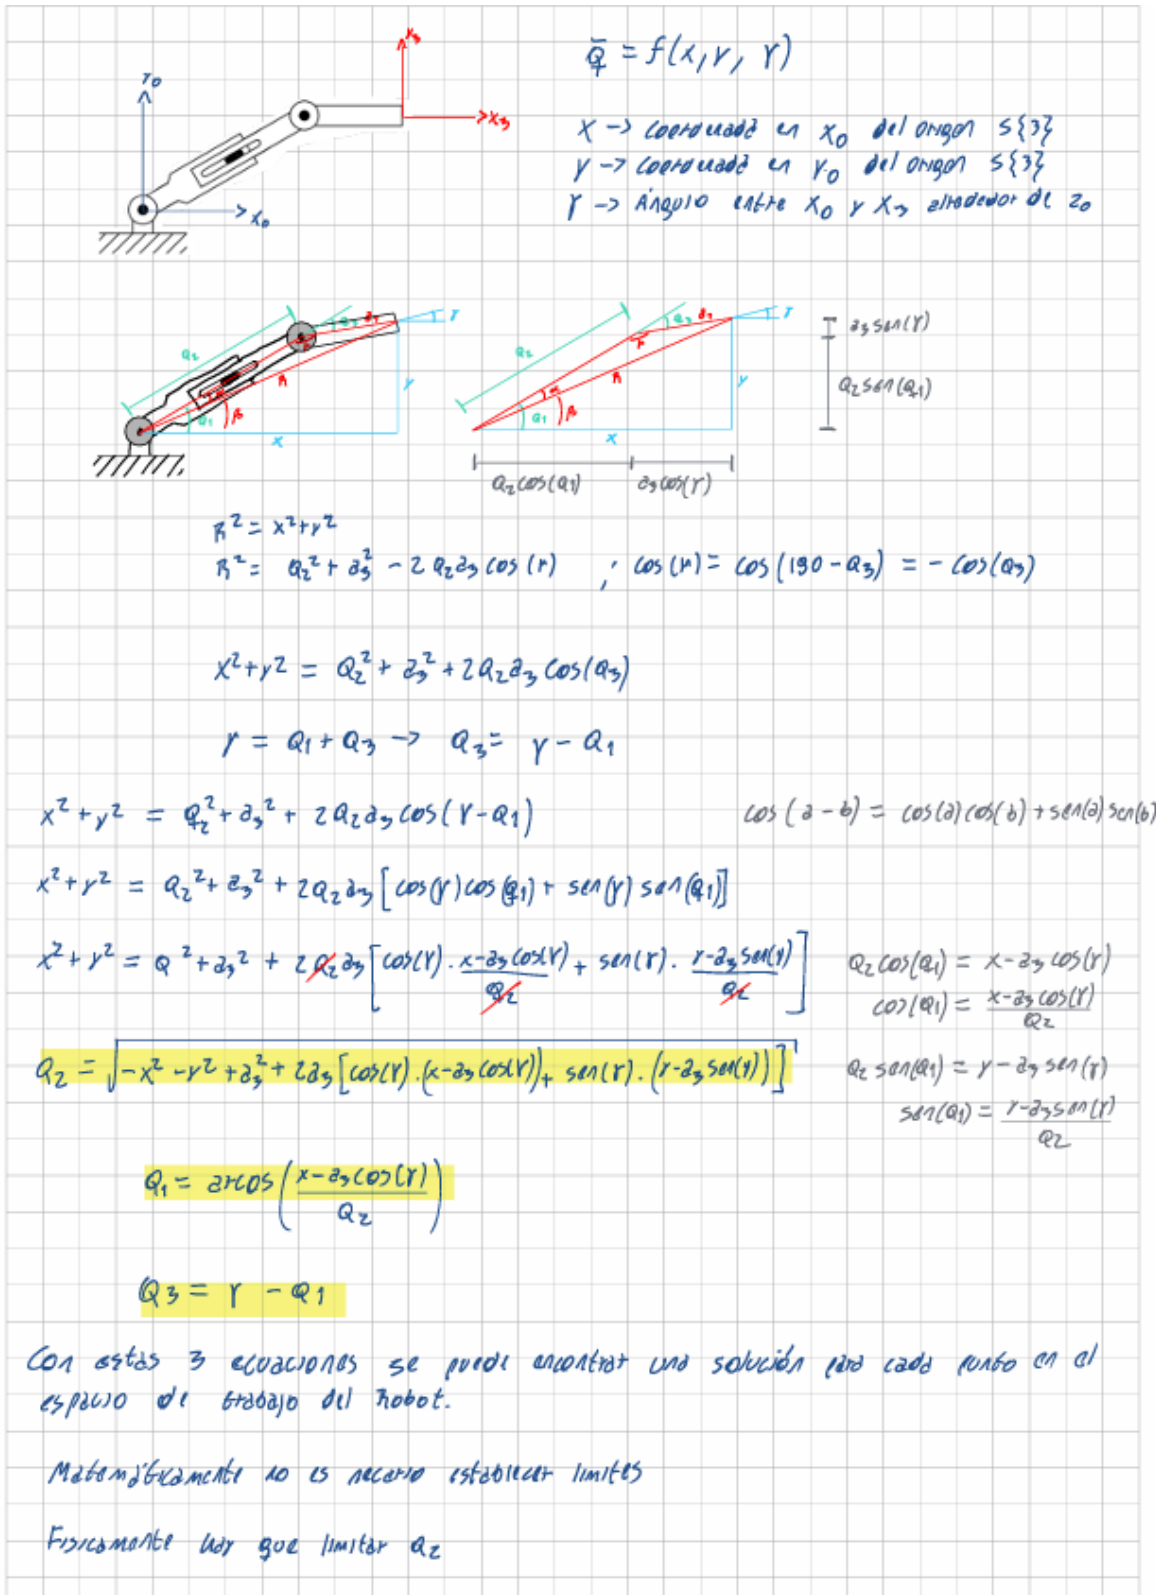 Q̄ = f(x, y, γ)
Y₀
X₃
X₀
Y₃
x -> coordenada en x₀ del origen S{3}
y -> coordenada en y₀ del origen S{3}
γ -> Ángulo entre x₀ y x₃ alrededor de z₀
Q₂ Q₃ a₃ γ R α Q₁ β y x
Q₂ Q₃ a₃ γ r R α Q₁ β y x
a₃sen(γ)
Q₂sen(Q₁)
Q₂cos(Q₁) a₃cos(γ)
R² = x²+y²
R² = Q₂² + a₃² - 2Q₂a₃cos(r) ; cos(r) = cos(180-Q₃) = -cos(Q₃)
x²+y² = Q₂² + a₃² + 2Q₂a₃cos(Q₃)
γ = Q₁+Q₃ -> Q₃ = γ - Q₁
x²+y² = Q₂² + a₃² + 2Q₂a₃cos(γ-Q₁) cos(a-b) = cos(a)cos(b)+sen(a)sen(b)
x²+y² = Q₂² + a₃² + 2Q₂a₃[cos(γ)cos(Q₁)+ sen(γ)sen(Q₁)]
x²+y² = Q² + a₃² + 2Q₂a₃[cos(γ)·(x-a₃cos(γ))/Q₂ + sen(γ)·(y-a₃sen(γ))/Q₂] Q₂cos(Q₁) = x-a₃cos(γ)
cos(Q₁) = (x-a₃cos(γ))/Q₂
Q₂ = √(-x²-y²+a₃²+2a₃[cos(γ)·(x-a₃cos(γ))+ sen(γ)·(y-a₃sen(γ))]) Q₂sen(Q₁) = y-a₃sen(γ)
sen(Q₁) = (y-a₃sen(γ))/Q₂
Q₁ = arcos((x-a₃cos(γ))/Q₂)
Q₃ = γ - Q₁
Con estas 3 ecuaciones se puede encontrar una solución para cada punto en el
espacio de trabajo del Robot.
Matemáticamente no es necario establecer limites
Fisicamente hay que limitar Q₂